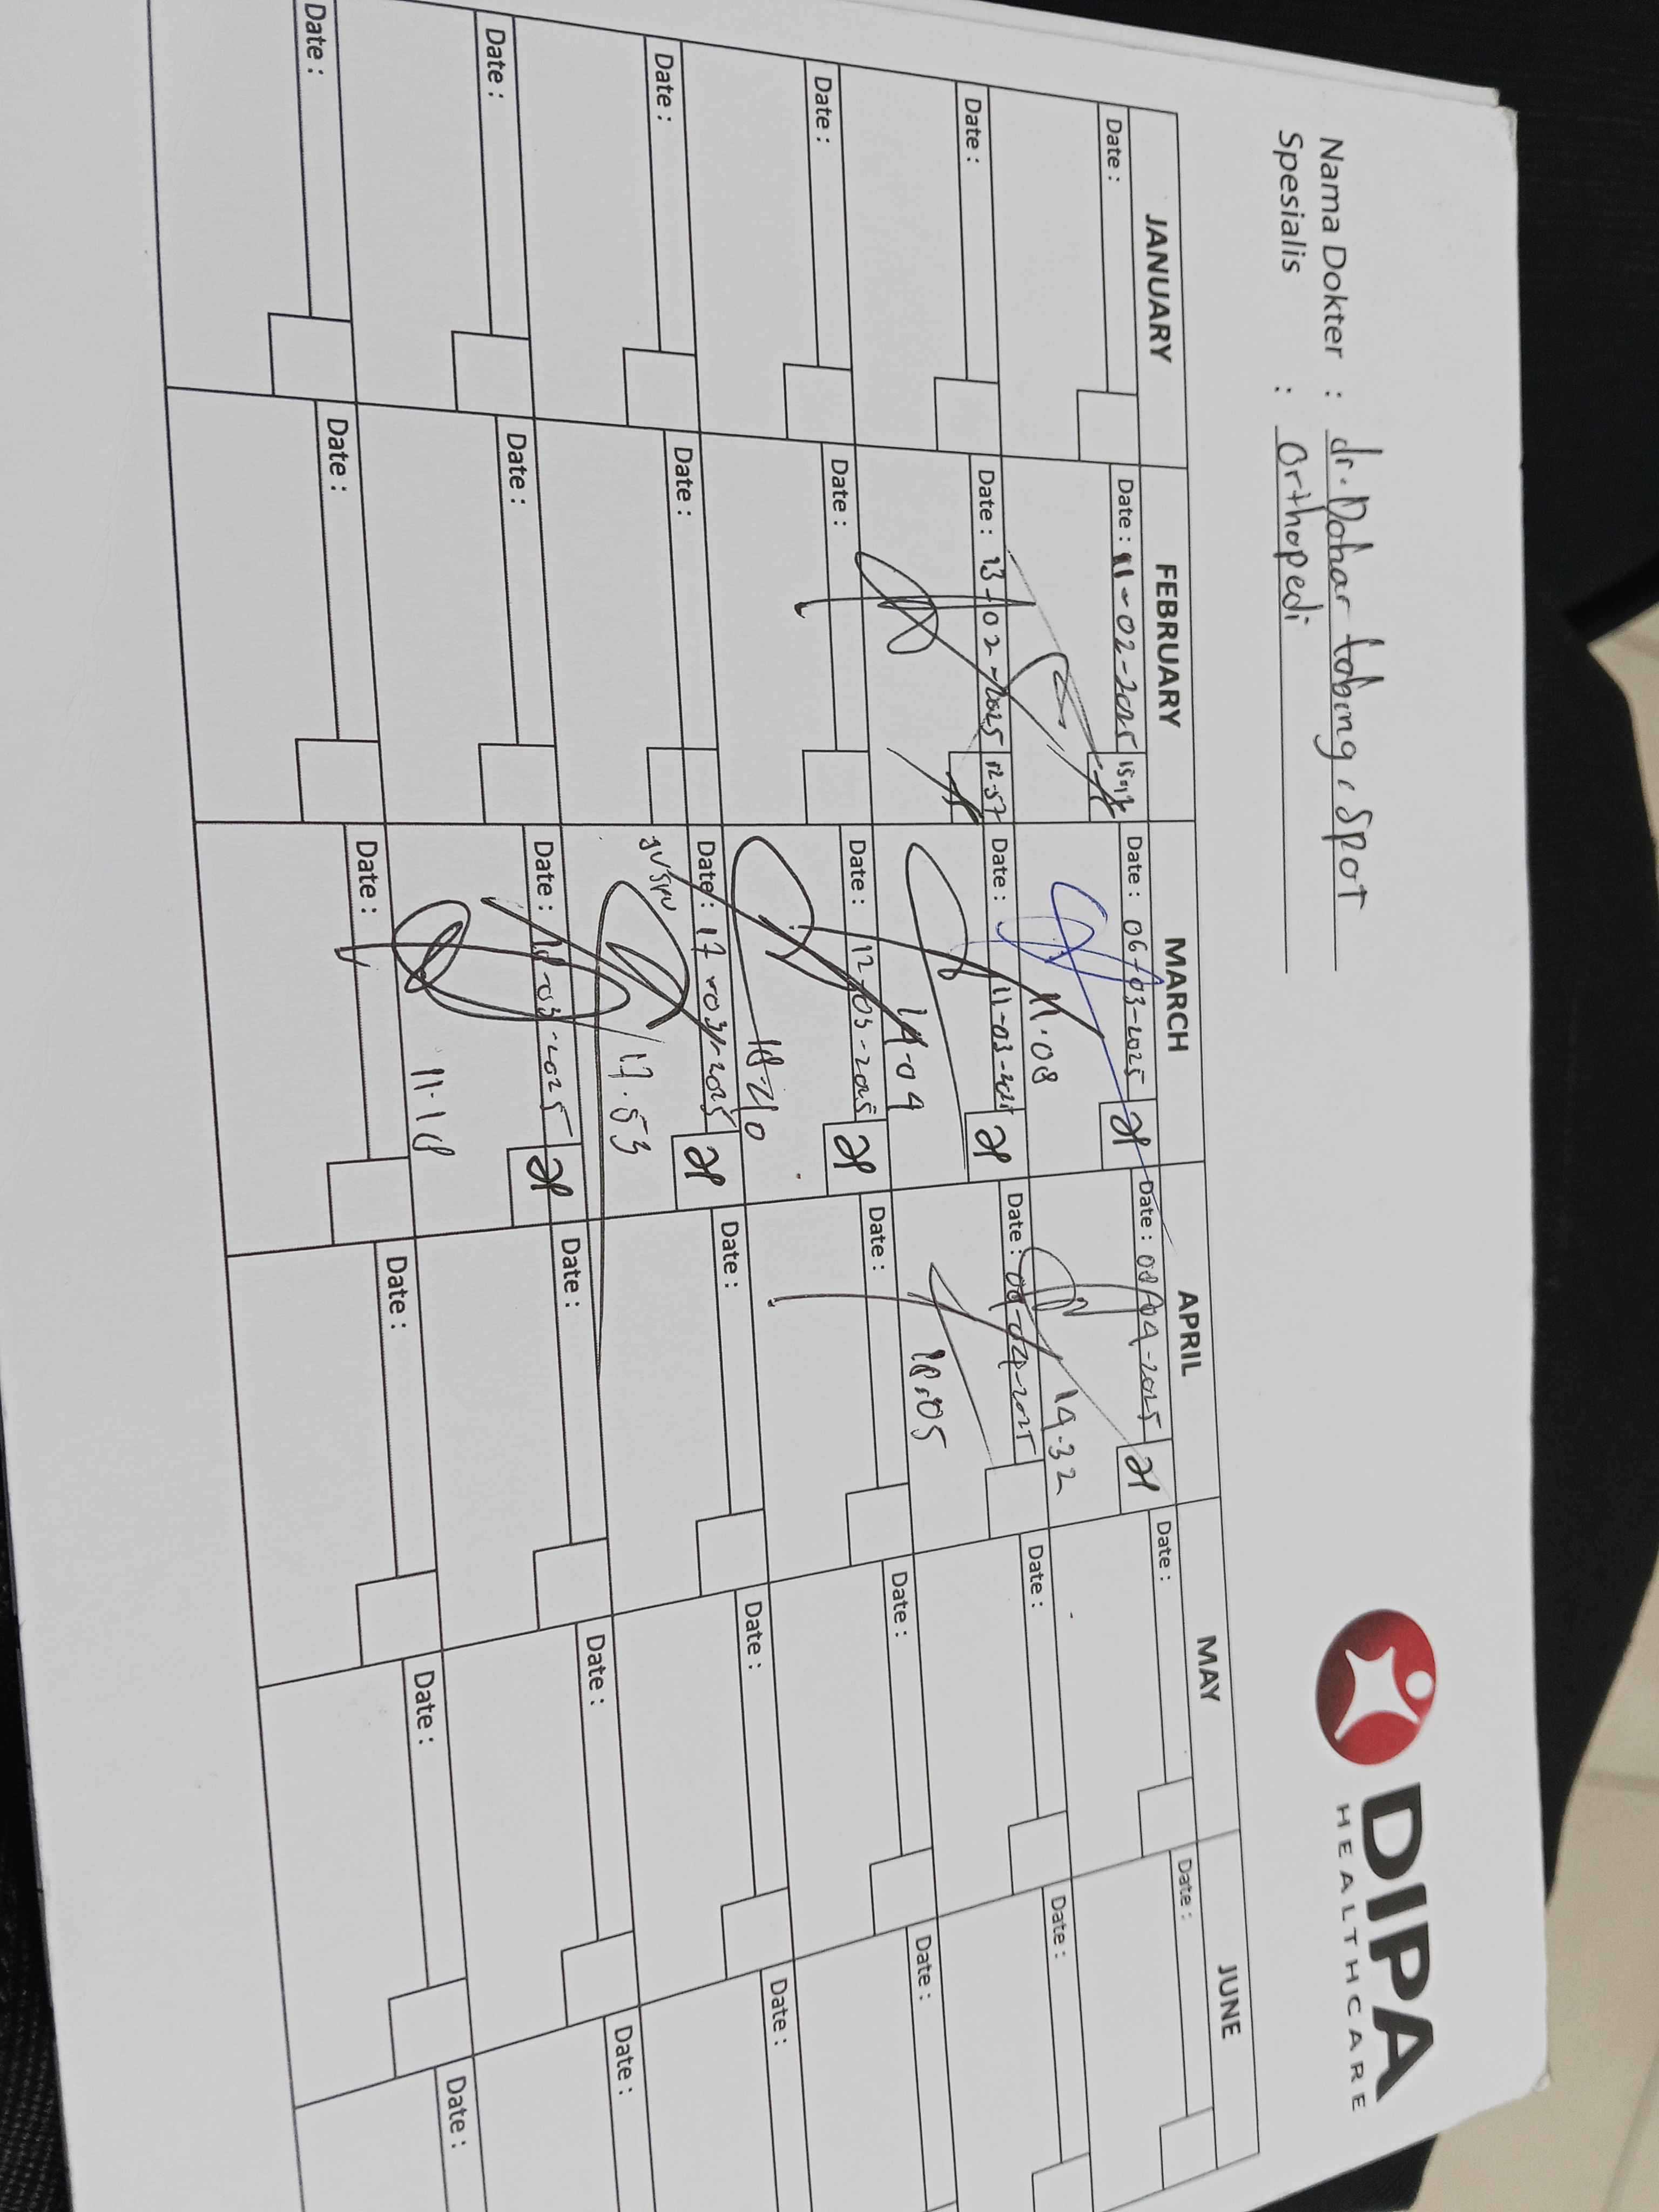 Nama Dokter : dr. Dohar tobing, Spot
Spesialis : Orthopedi
DIPA
HEALTHCARE
JANUARY FEBRUARY MARCH APRIL MAY JUNE
Date : Date : 11-02-2025 Date : 06-03-2025 Date : 08-04-2025 Date : Date :
11.08 14.32
Date : Date : 13-02-2025 12.57 Date : 11-03-2025 Date : Date : Date :
14-04 18.05
Date : Date : Date : 12-03-2025 Date : Date : Date :
Date : Date : Date : 17-03-2025 Date : Date : Date :
17.53
Date : Date : Date : Date : Date : Date :
11.18
Date : Date : Date : Date : Date : Date :